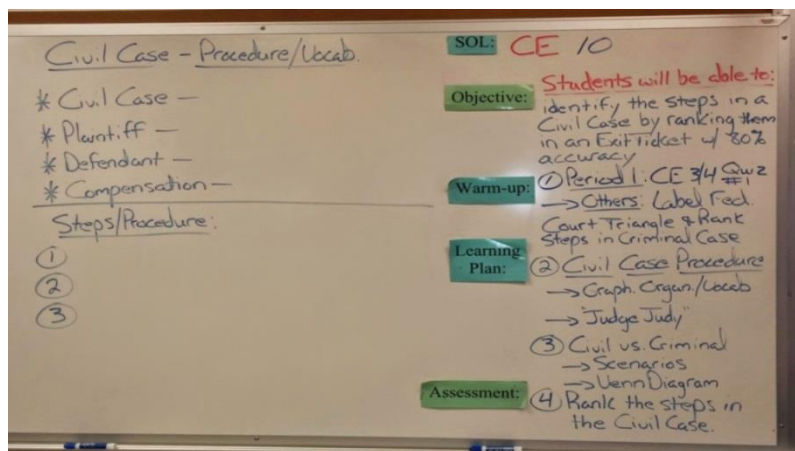 Civil Case - Procedure/Vocab.
* Civil Case -
* Plaintiff -
* Defendant -
* Compensation -
Steps/Procedure:
1
2
3
SOL: CE 10
Objective: Students will be able to:
identify the steps in a
Civil Case by ranking them
in an Exit Ticket w/ 80%
accuracy
Warm-up: 1 Period 1: CE 3/4 Quiz #1
→ Others: Label Fed.
Court Triangle & Rank
Steps in Criminal Case
Learning Plan: 2 Civil Case Procedure
→ Graph. Organ./Vocab
→ "Judge Judy"
3 Civil vs. Criminal
→ Scenarios
→ Venn Diagram
Assessment: 4 Rank the steps in
the Civil Case.